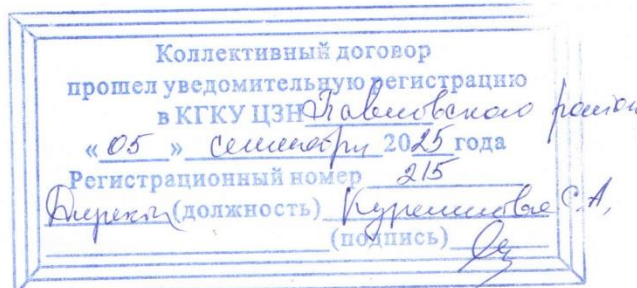 Коллективный договор
прошел уведомительную регистрацию
в КГКУ ЦЗН Павловского района
«05» сентября 2025 года
Регистрационный номер 215
Директор (должность) С.А.
(подпись)